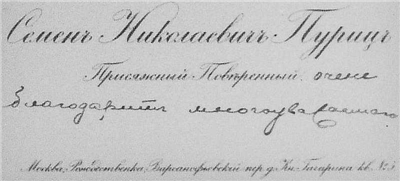 Семенъ Николаевичъ Пурицъ
Присяжный Повѣренный. очень
благодаритъ многоуважаемаго
Москва, Рождественка, Варсонофьевскій пер. д. Кн. Гагарина кв. № 5